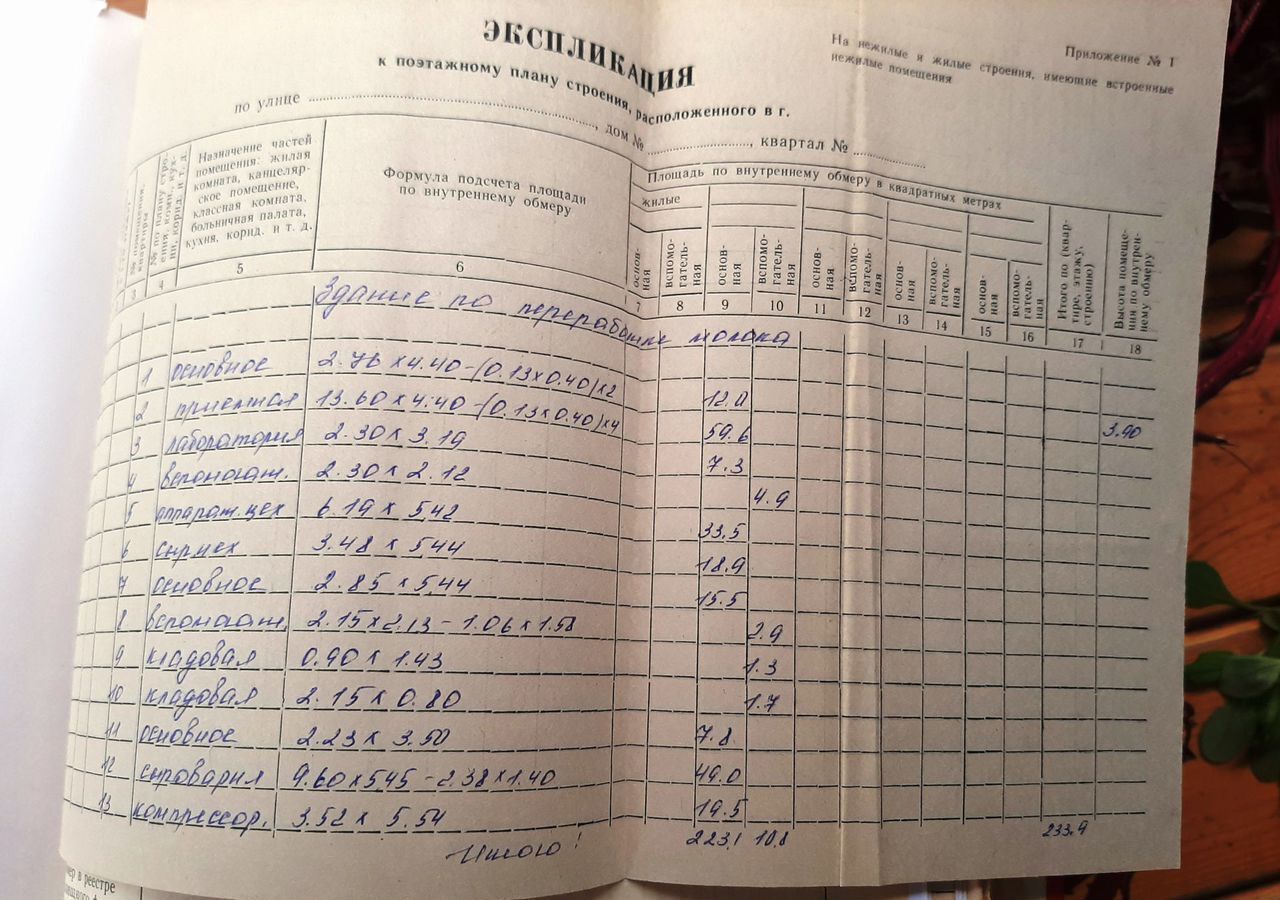 ЭКСПЛИКАЦИЯ
Приложение № 1
На нежилые и жилые строения, имеющие встроенные
нежилые помещения
к поэтажному плану строения, расположенного в г.
по улице ........ , дом № ........ , квартал № ........
Площадь по внутреннему обмеру в квадратных метрах
№ помещения, квартиры
№ по плану строения, комн., кухни, корид. и т. д.
Назначение частей помещения: жилая комната, канцелярское помещение, классная комната, больничная палата, кухня, корид. и т. д.
Формула подсчета площади по внутреннему обмеру
жилые
основная вспомогательная основная вспомогательная основная вспомогательная основная вспомогательная основная вспомогательная
Итого по (квартире, этажу, строению)
Высота помещения по внутреннему обмеру
3 4 5 6 7 8 9 10 11 12 13 14 15 16 17 18
Здание по переработке молока
1 основное 2.76 x 4.40 - (0.13 x 0.40) x 2 12.0
2 приемная 13.60 x 4.40 - (0.13 x 0.40) x 4 59.6 3.90
3 лаборатория 2.30 x 3.19 7.3
4 вспомогат. 2.30 x 2.12 4.9
5 аппарат.цех 6.19 x 5.42 33.5
6 сырцех 3.48 x 5.44 18.9
7 основное 2.85 x 5.44 15.5
8 вспомогат. 2.15 x 2.13 - 1.06 x 1.58 2.9
9 кладовая 0.90 x 1.43 1.3
10 кладовая 2.15 x 0.80 1.7
11 основное 2.23 x 3.50 7.8
12 сыроварня 9.60 x 5.45 - 2.38 x 1.40 49.0
13 компрессор. 3.52 x 5.54 19.5
Итого: 223.1 10.8 233.9